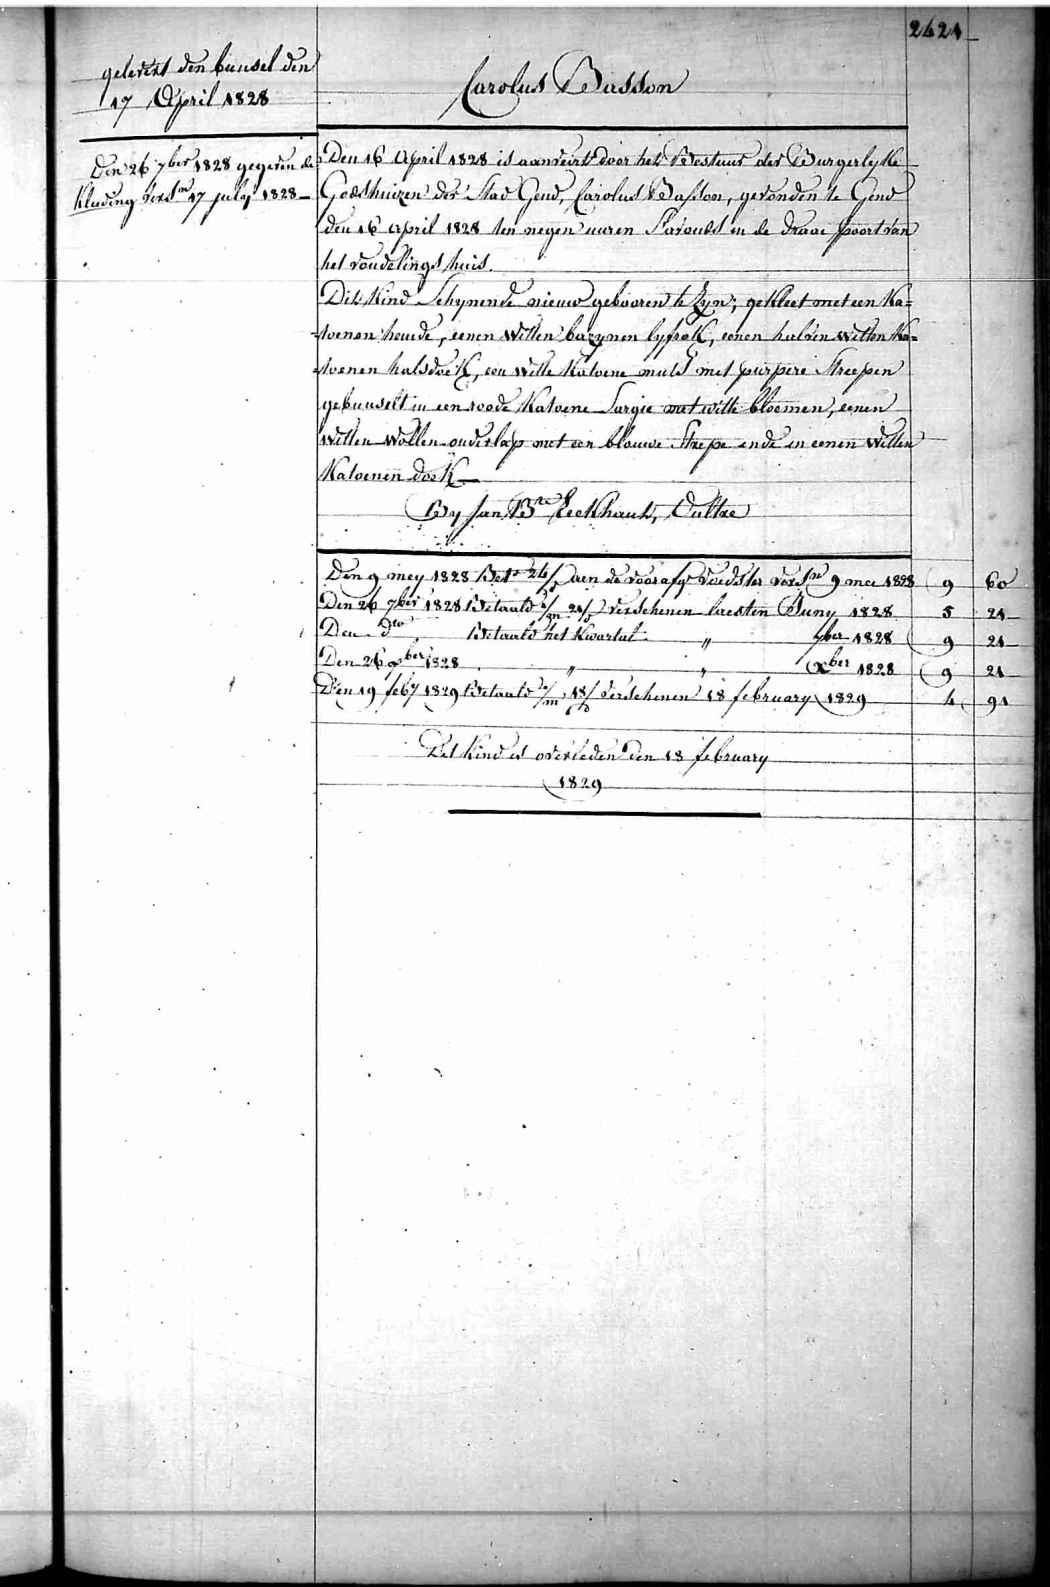 2424
gelevert den bunsel den
17 April 1828
Carolus Basson
Den 26 7ber 1828 gegeven de
Kleeding verst.en 17 july 1828
Den 16 April 1828 is aanveirt door het Bestuur der Burgerlyke
Godshuizen der Stad Gend, Carolus Basson, gevonden te Gend
den 16 April 1828 ten negen uuren S'avonds in de draai poort van
het vondelings huis.
Dit Kind Schynende nieuw gebooren te zyn; gekleet met een Ka=
toenen hemde, eenen witten bazynen lyfrok, eenen halven witten Ka=
toenen halsdoek, een witte Katoene muts met purpere Streepen
gebunselt in een roode Katoene Sargie met witte bloemen, eenen
witten wollen onderlap met een blauwe Strepe ende in eenen witten
Katoenen doek
By Jan B.te Eeckhaut, Oultre
Den 9 mey 1828 Bet. 24/ aen de voedster 9 mei 1828 9 60
Den 26 7ber 1828 Betaald 21/ verschenen laesten Juny 1828 5 24
Den d.to Betaald het Kwartal " 7ber 1828 9 21
Den 26 xber 1828 " " xber 1828 9 21
Den 19 feby 1829 Betaald 18/ verschenen 18 february 1829 4 91
Dit Kind is overleden den 18 february
1829